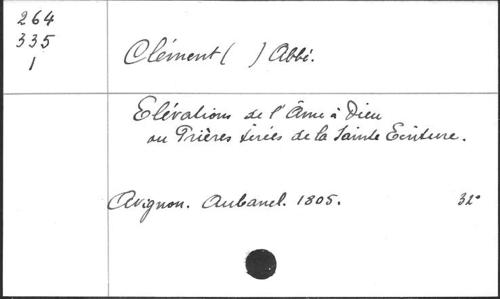 264
335
1
Clément (   ) Abbé.
Elévations de l'Âme à Dieu
ou Prières tirées de la Sainte Ecriture.
Avignon. Aubanel. 1805. 32°